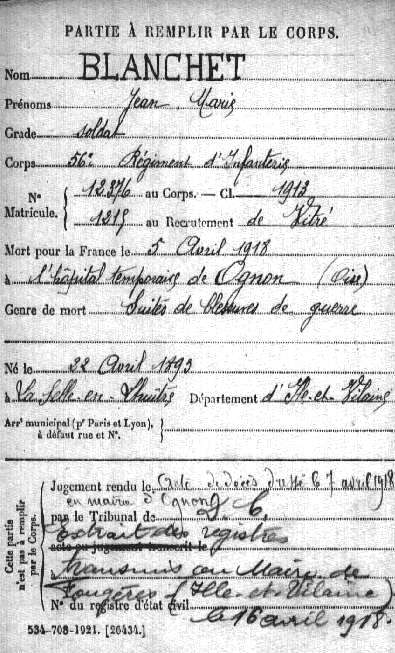 PARTIE À REMPLIR PAR LE CORPS.
Nom BLANCHET
Prénoms Jean Marie
Grade soldat
Corps 56e Régiment d'Infanterie
N° Matricule. { 12376 au Corps. — Cl. 1913
1215 au Recrutement de Vitré
Mort pour la France le 5 Avril 1918
à l'hôpital temporaire de Ognon (Oise)
Genre de mort Suites de blessures de guerre
Né le 22 Avril 1893
à La Selle-en-Luitré Département d'Ile-et-Vilaine
Arrt municipal (pr Paris et Lyon),
à défaut rue et N°.
Cette partie n'est pas à remplir par le Corps.
Jugement rendu le Acte de décès dressé 7 avril 1918
en mairie d'Ognon
par le Tribunal de
Extrait des registres
acte ou jugement transcrit le
à transmis au Maire de
Fougères (Ille-et-Vilaine)
N° du registre d'état civil le 16 avril 1918.
534-708-1921. [26434.]